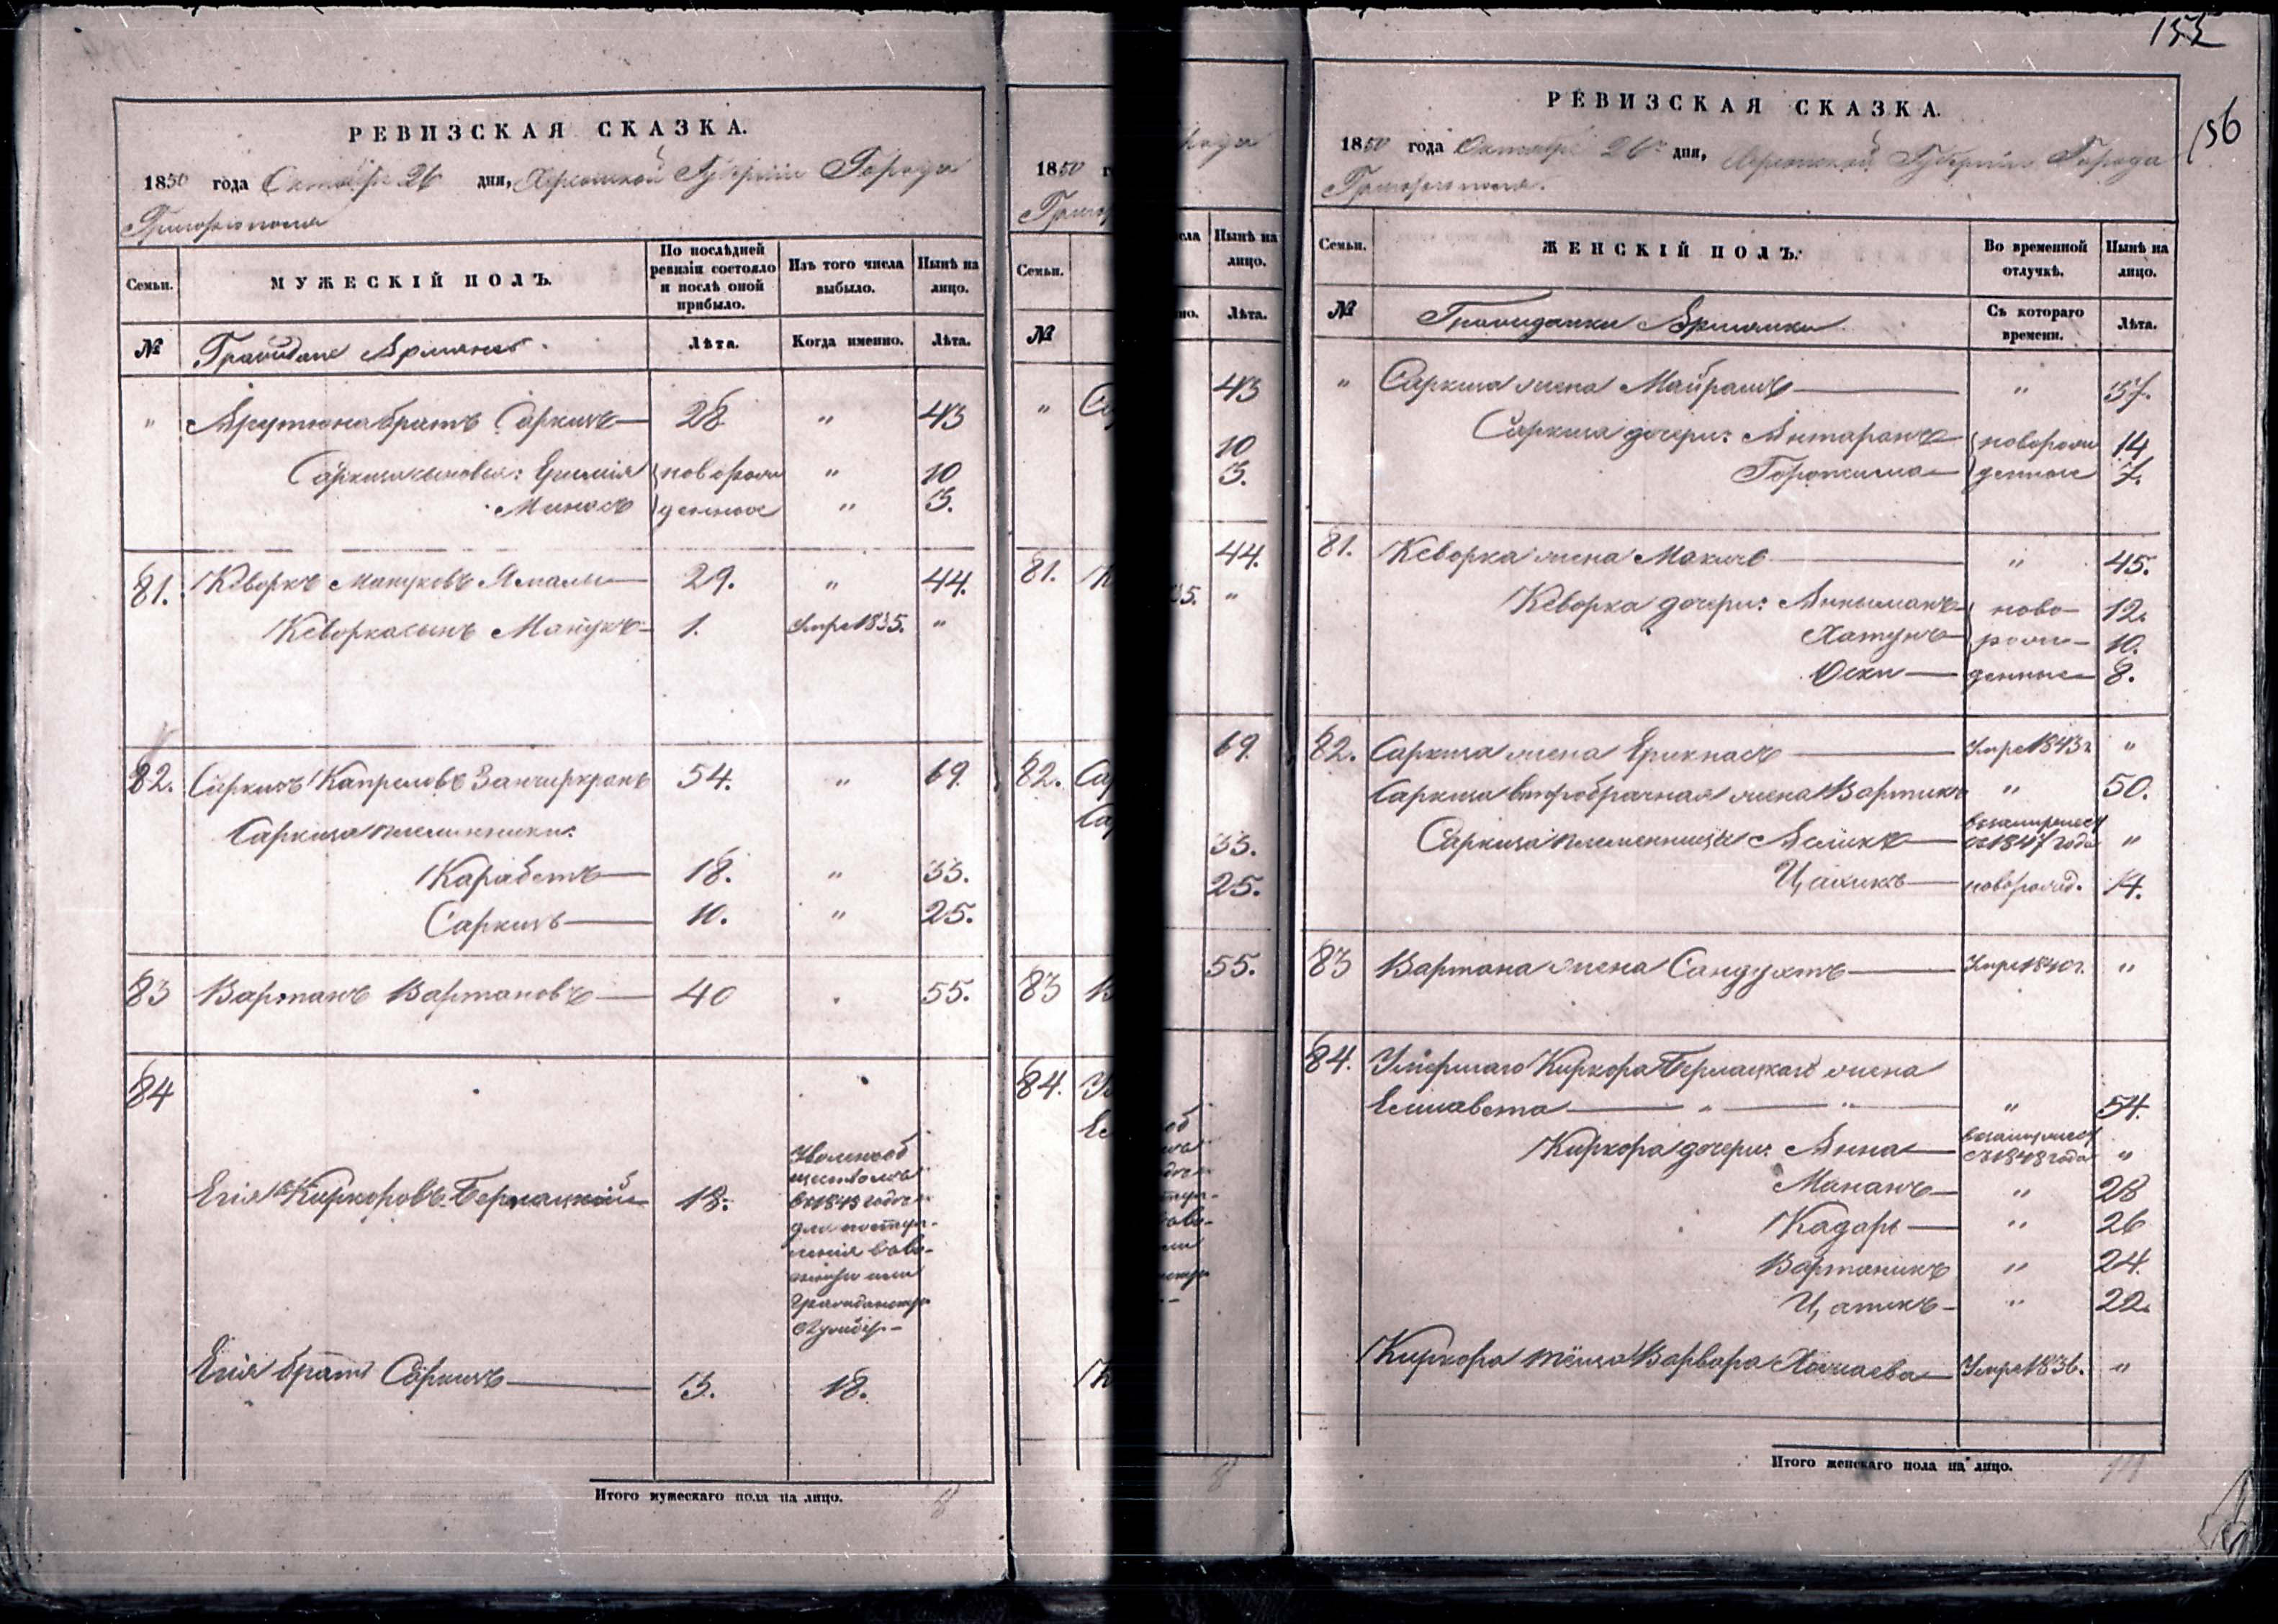 РЕВИЗСКАЯ СКАЗКА.
1850 года Октября 26 дня, Херсонской Губернии Города
Григориополя
Семьи. МУЖЕСКІЙ ПОЛЪ. По послѣдней ревизіи состояло и послѣ оной прибыло. Изъ того числа выбыло. Нынѣ на лицо.
№ Граждане Армяне Лѣта. Когда именно. Лѣта.
" Арутюна братъ Саркисъ 28 " 43
Саркиса сыновья: Еремія новорож " 10
Минасъ денные " 3.
81. Кеворкъ Мануковъ 29. " 44.
Кеворка сынъ Манукъ 1. Умре 1835. "
82. Саркисъ Капреловъ 54. " 69
Саркиса племянники:
Карабетъ 18. " 33.
Саркисъ 10. " 25.
83 Вартанъ Вартановъ 40 55.
84
Егія Киркоровъ 13.
Уволенъ об
ществомъ
въ 1843 годе
для поступ-
ленія въ во-
енную или
гражданскую
службу
Егія братъ Саркисъ 3. 18.
Итого мужескаго пола на лицо. 8
1850 г
Семьи.
№
" Са
81. К
82. Са
Са
83 В
84. У
Ел
К
Нынѣ на лицо.
Лѣта.
43
10
3.
44.
35. "
69.
33.
25.
55.
155
156
РЕВИЗСКАЯ СКАЗКА.
1850 года Октября 26 дня, Херсонской Губерніи Города
Григориополя.
Семьи. ЖЕНСКІЙ ПОЛЪ. Во временной отлучкѣ. Нынѣ на лицо.
№ Гражданки Армянки Съ котораго времени. Лѣта.
" Саркиса жена Майрамъ " 37.
Саркиса дочери: Антарамъ новорож 14
денные 7.
81. Кеворка жена " 45.
Кеворка дочери: ново- 12.
Хатунъ рож- 10.
Оски денные 8.
82. Саркиса жена Ерикнасъ Умре 1843 г "
Саркиса второбрачная жена Вартикъ " 50.
Саркиса племянница взамужест съ 1847 года "
Цахикъ новорожд. 14.
83 Вартана жена Сандухтъ Умре 1840 г. "
84. Умершаго Киркора жена
Елисавета " " " 54.
Киркора дочери: Анна взамужест съ 1848 года "
Мананъ " 28
Кадаръ " 26
Вартаникъ " 24.
" 22.
Киркора тёща Варвара Умре 1836. "
Итого женскаго пола на лицо.